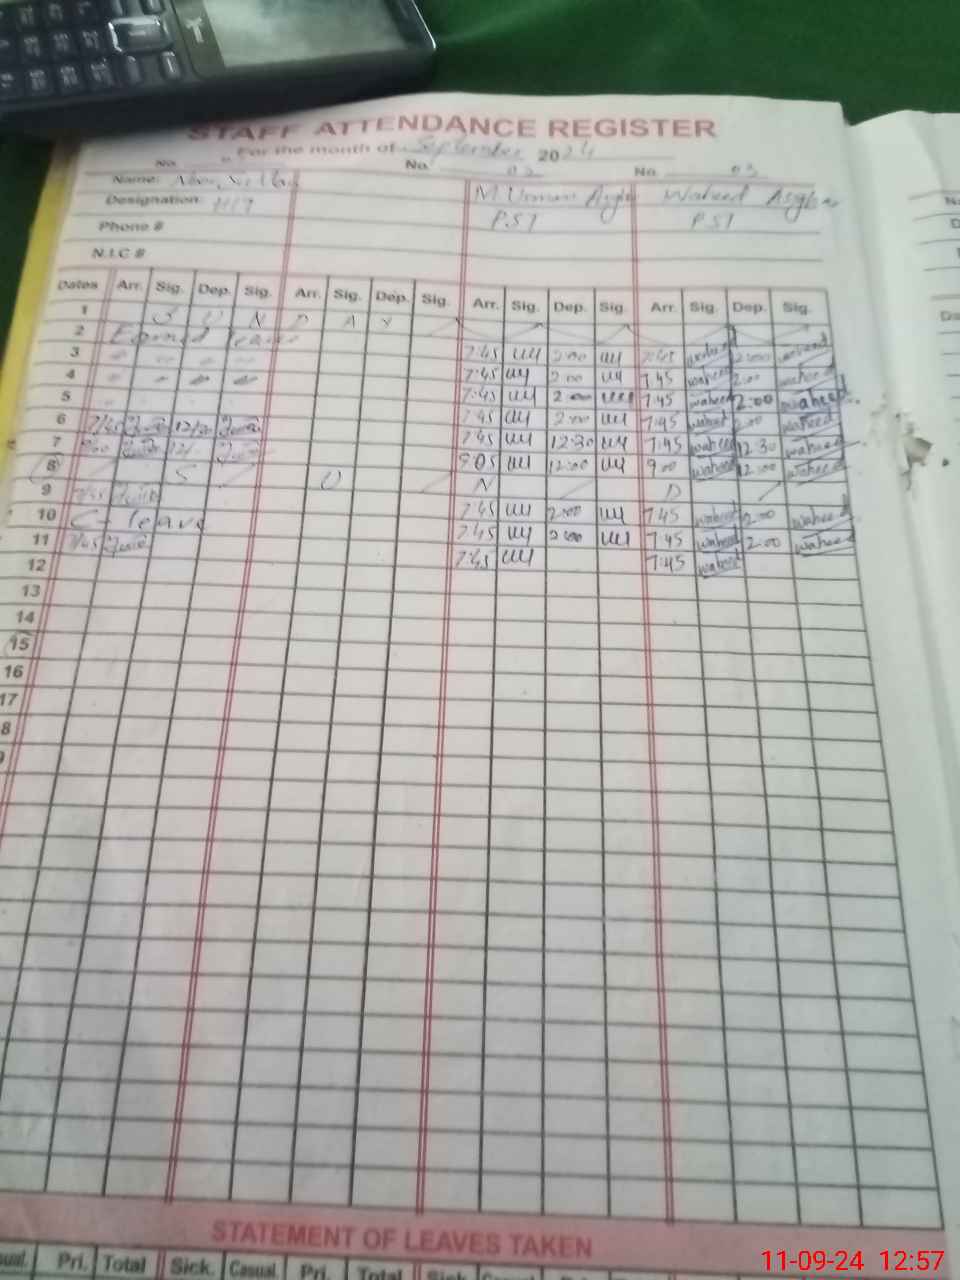 STAFF ATTENDANCE REGISTER
For the month of September 2024
No. No. 02 No. 03
Name: M. Usman Waheed Asghar
Designation: PST PST
Phone #
N.I.C #
Dates Arr. Sig. Dep. Sig. Arr. Sig. Dep. Sig. Arr. Sig. Dep. Sig. Arr. Sig. Dep. Sig.
1 S U N D A Y
2 Earned leave 7:45 2:00 7:45 waheed 2:00 waheed
3 7:45 2:00 7:45 waheed 2:00 waheed
4 7:45 2:00 7:45 waheed 2:00 waheed
5 7:45 2:00 7:45 waheed 2:00 waheed
6 7/45 12/30 7:45 12:30 7:45 waheed 12:30 waheed
7 9:00 12/ 9:05 12:00 9:00 waheed 12:00 waheed
8 S U N D
9 7/45 7:45 2:00 7:45 waheed 2:00 waheed
10 C- leave 7:45 2:00 7:45 waheed 2:00 waheed
11 7/45 7:45 7:45 waheed
12
13
14
15
16
17
8
9
STATEMENT OF LEAVES TAKEN
Pri. Total Sick. Casual. Pri. Total Sick.
11-09-24 12:57